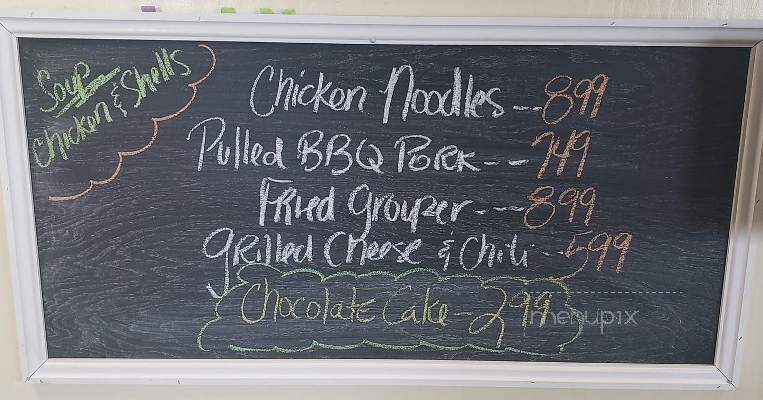 Soup
Chicken & Shells
Chicken Noodles -- 899
Pulled BBQ Pork -- 749
Fried Grouper --- 899
Grilled Cheese & Chili -- 599
Chocolate Cake - 299
menupix